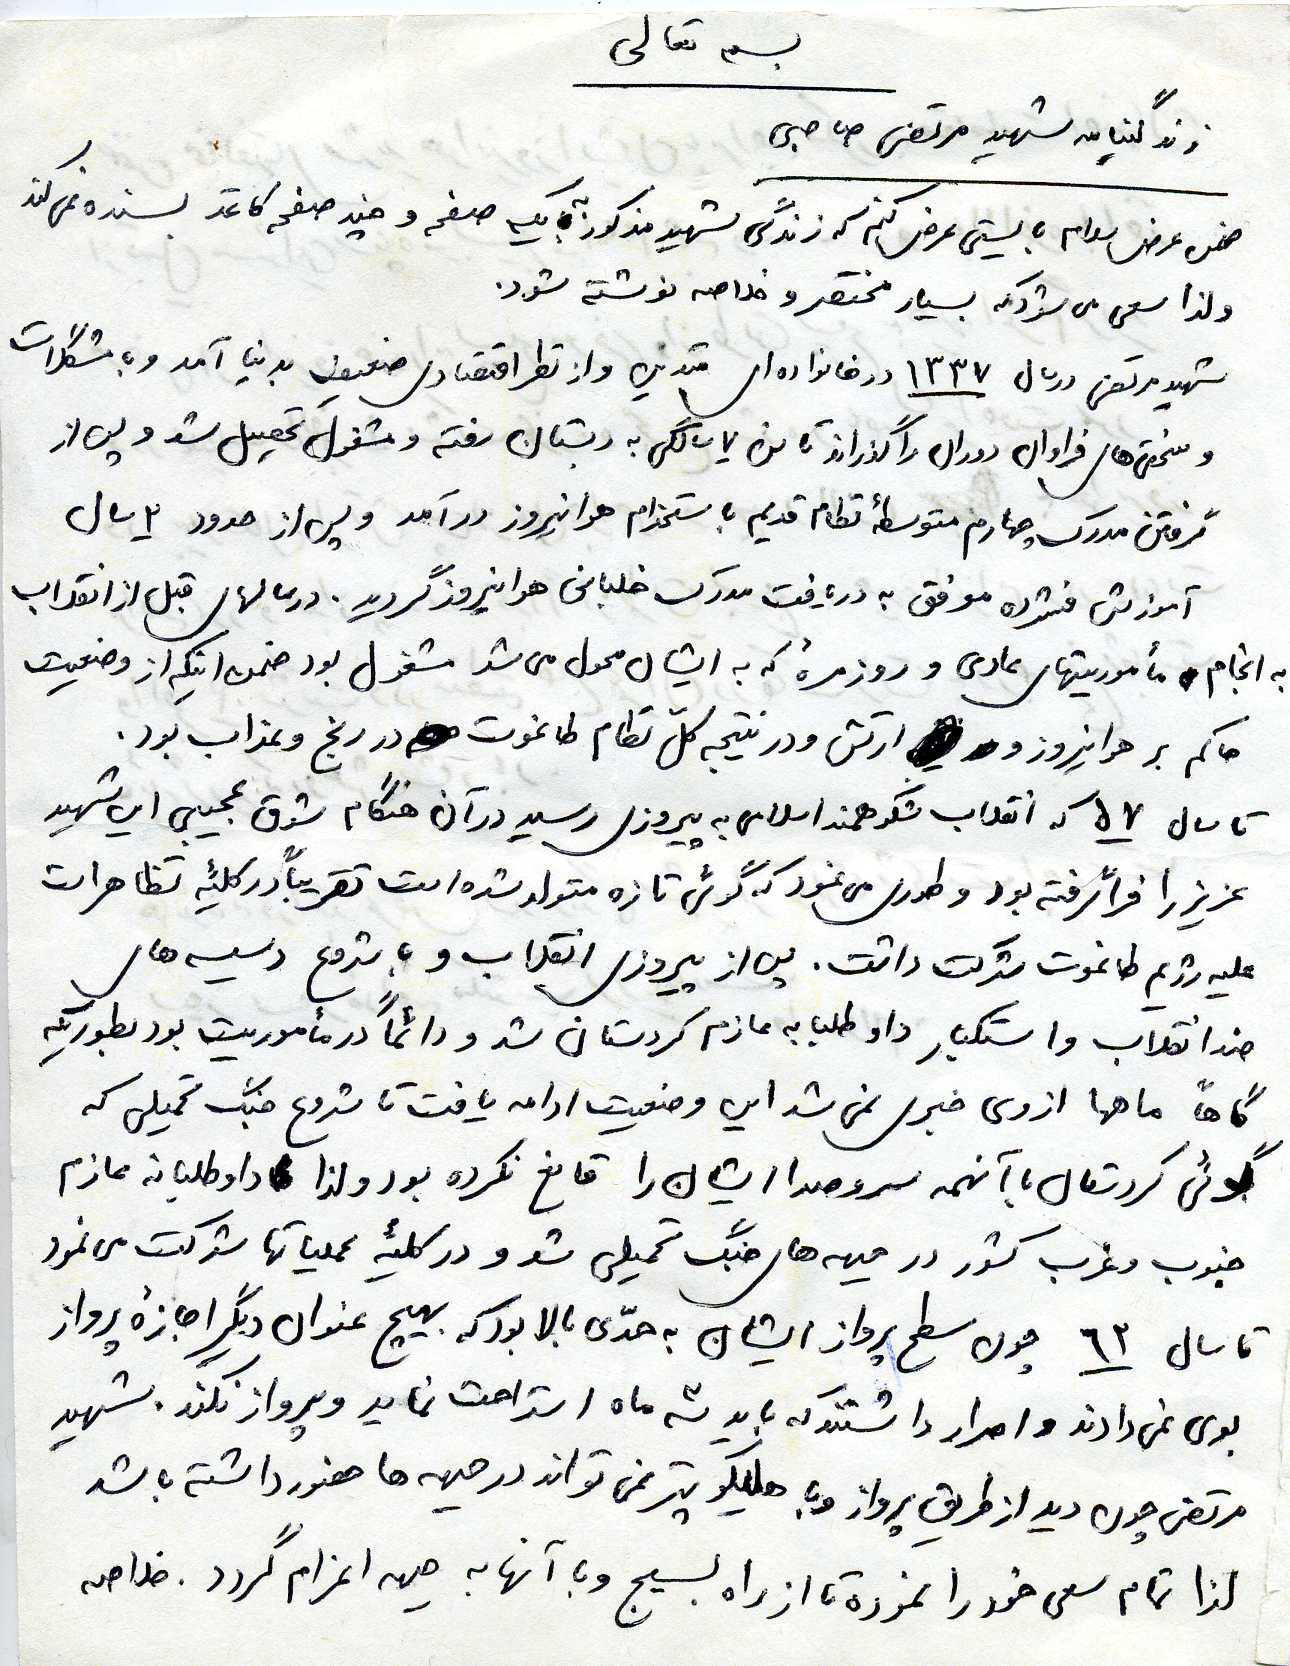 بسمه تعالی
زندگینامه شهید مرتضی صاحبی
ضمن عرض سلام بایستی عرض کنم که زندگی شهید مذکور به یک صفحه و چند صفحه کاغذ بسنده نمی‌کند
و لذا سعی می‌شود که بسیار مختصر و خلاصه نوشته شود.
شهید مرتضی در سال ۱۳۳۷ در خانواده‌ای متدین و از نظر اقتصادی ضعیف بدنیا آمد و با مشکلات
و سختی‌های فراوان دوران را گذراند تا سن ۷ سالگی به دبستان رفته و مشغول تحصیل شد و پس از
گرفتن مدرک چهارم متوسطهٔ نظام قدیم باستخدام هوانیروز درآمد و پس از حدود ۲ سال
آموزش فشرده موفق به دریافت مدرک خلبانی هوانیروز گردید. در سالهای قبل از انقلاب
به انجام مأموریتهای عادی و روزمرهٔ که به ایشان محول می‌شد مشغول بود ضمن اینکه از وضعیت
حاکم بر هوانیروز و ارتش و در نتیجه کلّ نظام طاغوت در رنج و عذاب بود.
تا سال ۵۷ که انقلاب شکوهمند اسلامی به پیروزی رسید در آن هنگام شوق عجیبی این شهید
عزیز را فراگرفته بود و طوری می‌نمود که گوئی تازه متولد شده است تقریباً در کلیهٔ تظاهرات
علیه رژیم طاغوت شرکت داشت. پس از پیروزی انقلاب و با شروع دسیسه‌های
ضد انقلاب و استکبار داوطلبانه عازم کردستان شد و دائماً در مأموریت بود بطوریکه
گاهاً ماهها از وی خبری نمی‌شد این وضعیت ادامه یافت تا شروع جنگ تحمیلی که
گوئی کردستان با آنهمه سر و صدا ایشان را قانع نکرده بود و لذا داوطلبانه عازم
جنوب و غرب کشور در جبهه‌های جنگ تحمیلی شد و در کلیهٔ عملیاتها شرکت می‌نمود
تا سال ۶۳ چون سطح پرواز ایشان به حدّی بالا بود که بهیچ عنوان دیگر اجازهٔ پرواز
بوی نمی‌دادند و اصرار داشتند که باید سه ماه استراحت نماید و پرواز نکند. شهید
مرتضی چون دید از طریق پرواز و با هلیکوپتر نمی‌تواند در جبهه‌ها حضور داشته باشد
لذا تمام سعی خود را نموده تا از راه بسیج و با آنها به جبهه اعزام گردد. خلاصه